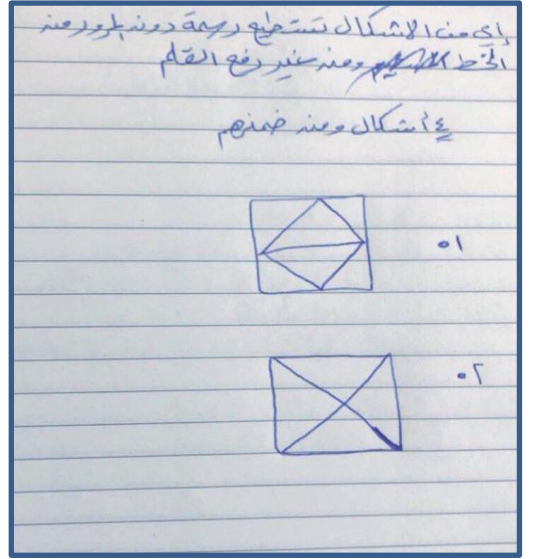 إي من الاشكال تستطيع رسمة دونه المرور منه
الخط ومنه غير رفع القلم
٤ أشكال ومنه ضمنهم
٠١
٠٢